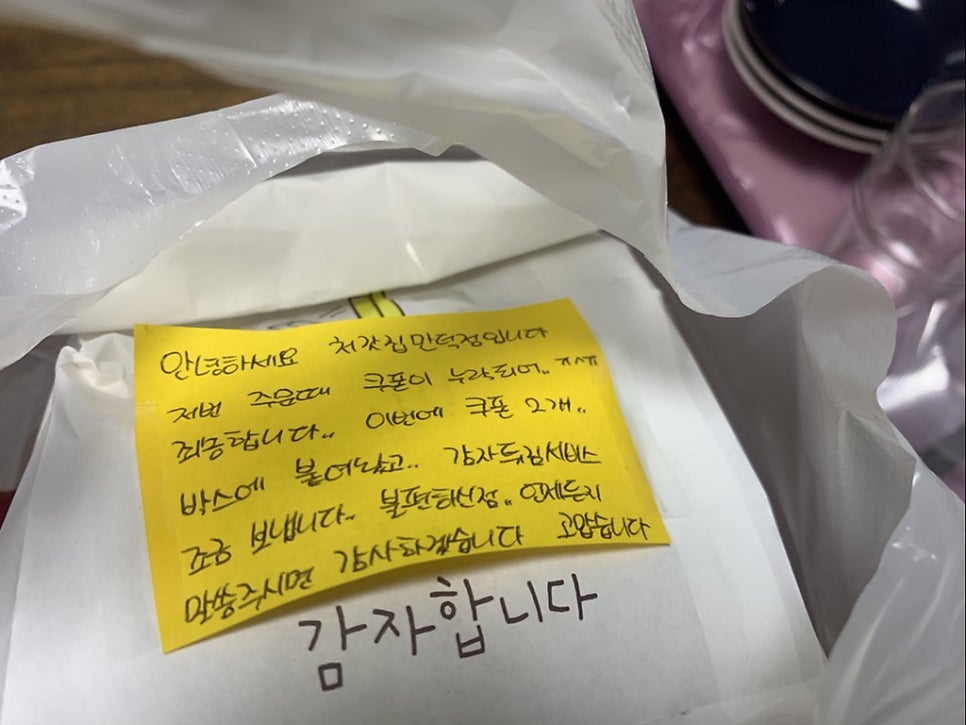 안녕하세요 처갓집만덕점입니다
저번 주문때 쿠폰이 누락되어.. ㅠㅅㅠ
죄송합니다.. 이번에 쿠폰 2개..
박스에 붙여놨고.. 감자튀김서비스
조금 보냅니다.. 불편하신점.. 언제든지
말씀주시면 감사하겠습니다 고맙습니다
감자합니다